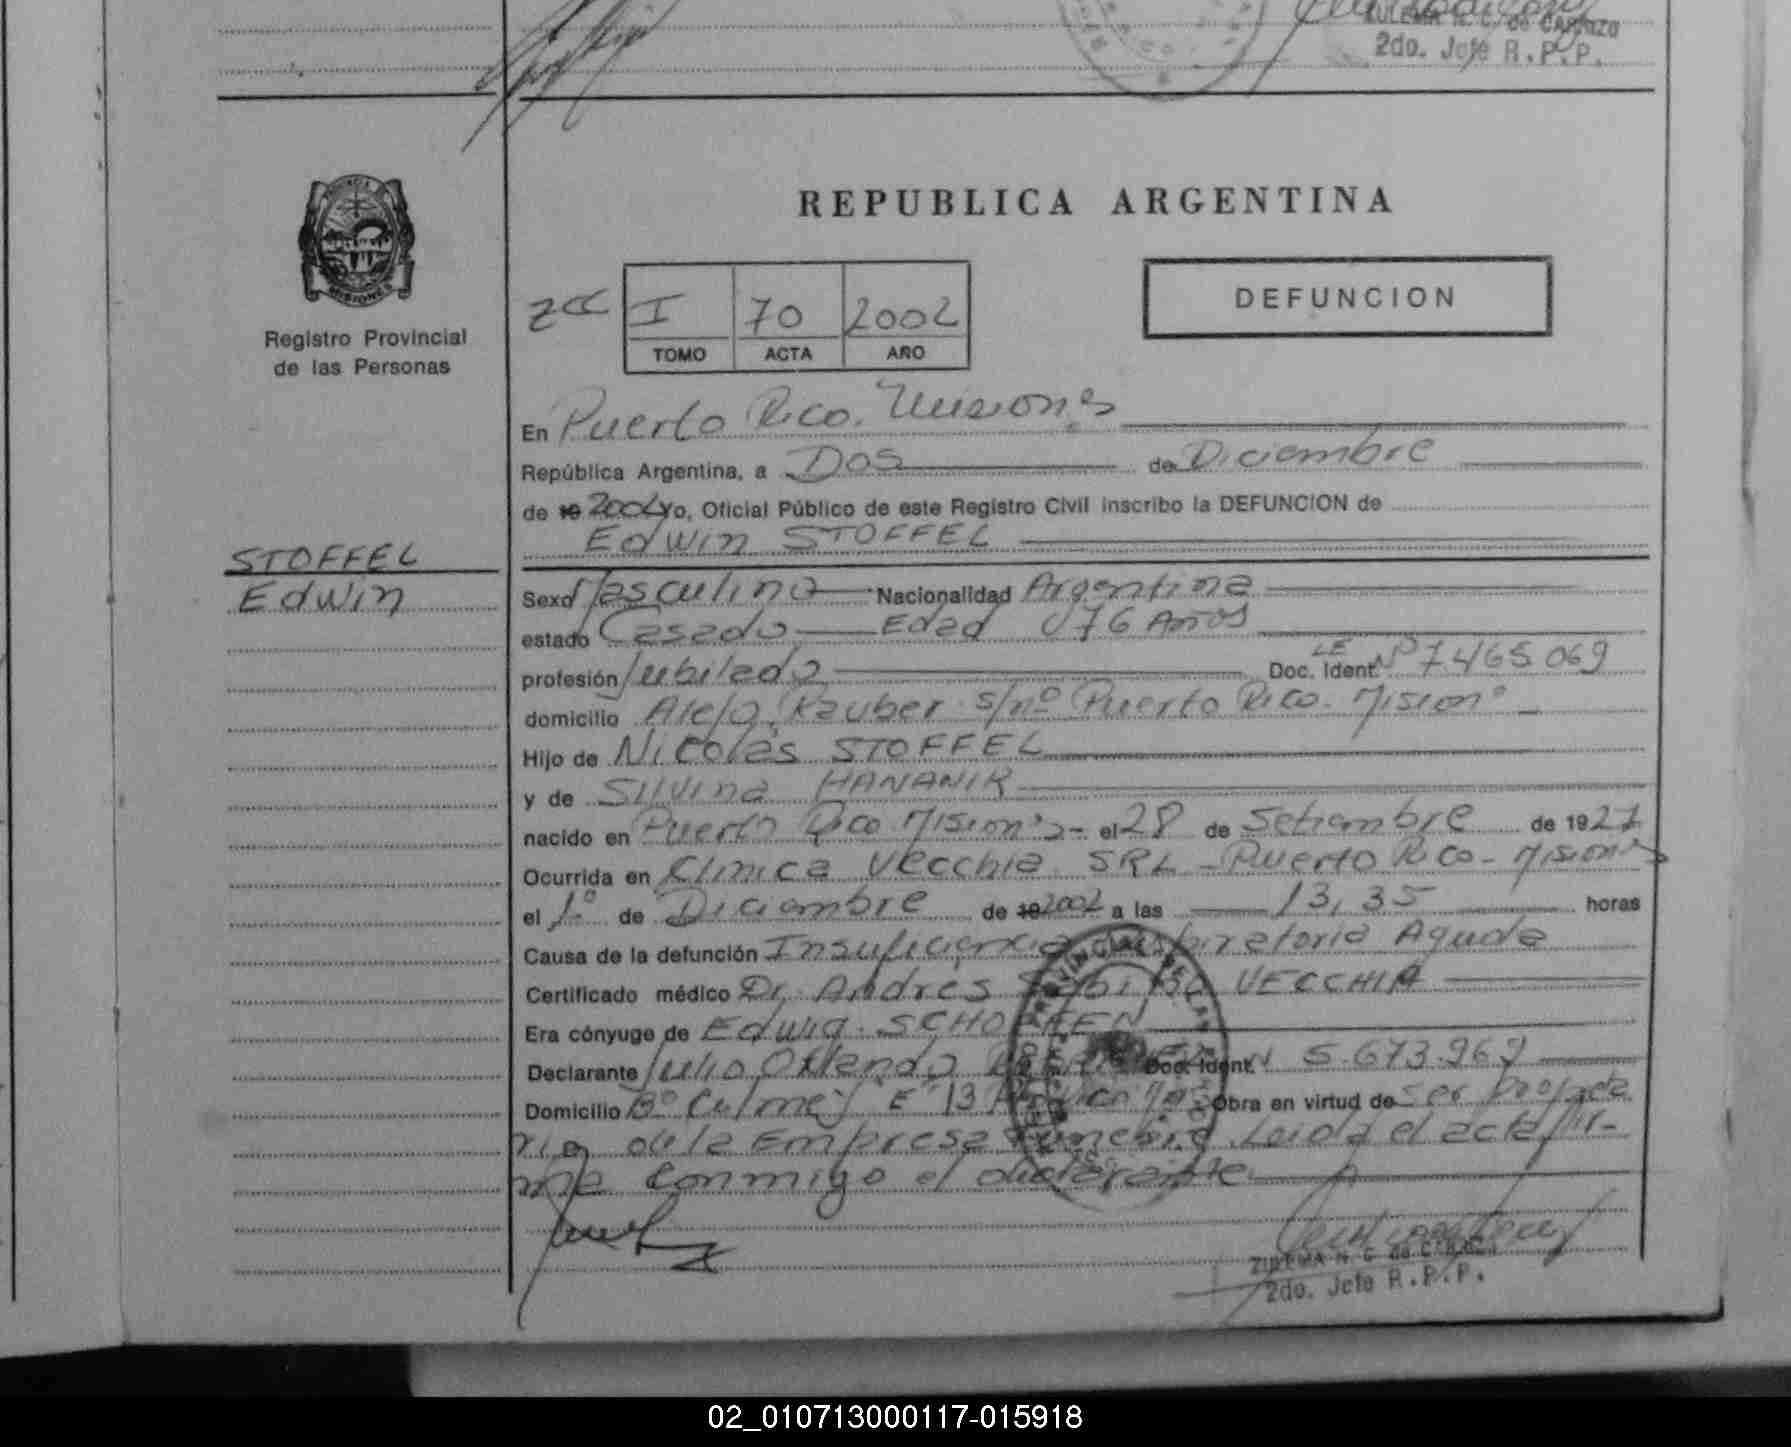 ZULEMA N. C. de CARDOZO
2do. Jefe R.P.P.
REPUBLICA ARGENTINA
MISIONES
Registro Provincial
de las Personas
zcc I 70 2002
TOMO ACTA AÑO
DEFUNCION
En Puerto Rico. Misiones
República Argentina, a Dos de Diciembre
de 19 2002 yo, Oficial Público de este Registro Civil inscribo la DEFUNCION de
Edwin STOFFEL
STOFFEL
Edwin
Sexo Masculino Nacionalidad Argentina
estado Casado Edad 76 Años
profesión Jubilado Doc. Ident. LE Nº 7.465.069
domicilio Alejo Rauber s/nº Puerto Rico. Mision
Hijo de Nicolás STOFFEL
y de Silvina HANANIR
nacido en Puerto Rico Misiones - el 28 de Setiembre de 1927
Ocurrida en Clinica Vecchia SRL - Puerto Rico - Misiones
el 1º de Diciembre de 19 2002 a las 13,35 horas
Causa de la defunción Insuficiencia Respiratoria Aguda
Certificado médico Dr. Andres VECCHIA
Era cónyuge de Edwig SCHOEFFEN
Declarante Julio Orlando Doc. Ident. N 5.673.969
Domicilio Bº Culmey E 13 Pto Rico Mis Obra en virtud de ser propieta
rio de la Empresa Funebre. Leida el acta fir-
ma conmigo el declarante
ZULEMA N. C. de CARDOZO
2do. Jefe R.P.P.
02_010713000117-015918